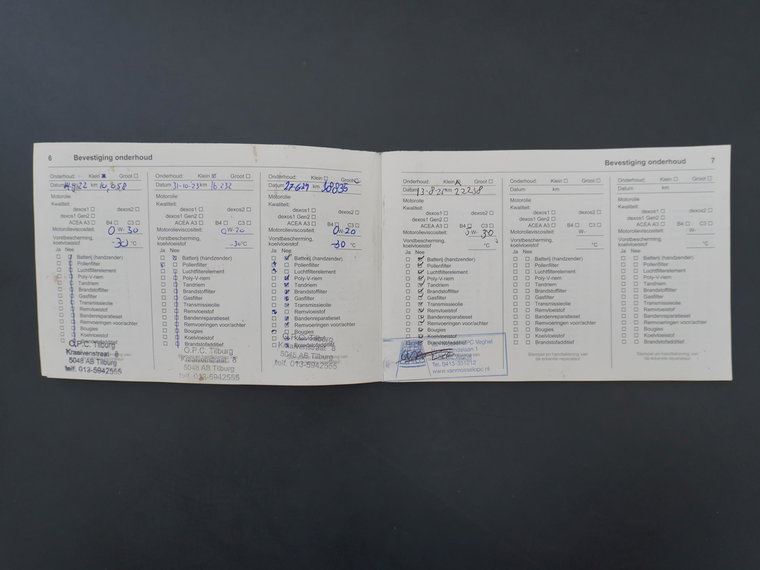 6 Bevestiging onderhoud
Onderhoud: Klein Groot
Datum km 10,658
Motorolie
Kwaliteit:
dexos1 dexos2
dexos1 Gen2
ACEA A3 B4 C3
Motorolieviscositeit: 0 W- 30
Vorstbescherming,
koelvloeistof -30 °C
Ja Nee
Batterij (handzender)
Pollenfilter
Luchtfilterelement
Poly-V-riem
Tandriem
Brandstoffilter
Gasfilter
Transmissieolie
Remvloeistof
Bandenreparatieset
Remvoeringen voor/achter
Bougies
Koelvloeistof
Brandstofadditief
O.P.C. Tilburg
Kraaivenstraat 6
5048 AB Tilburg
telf. 013-5942555
Onderhoud: Klein Groot
Datum 31-10-23 km 16.232
Motorolie
Kwaliteit:
dexos1 dexos2
dexos1 Gen2
ACEA A3 B4 C3
Motorolieviscositeit: 0W-20
Vorstbescherming,
koelvloeistof -30°C
Ja Nee
Batterij (handzender)
Pollenfilter
Luchtfilterelement
Poly-V-riem
Tandriem
Brandstoffilter
Gasfilter
Transmissieolie
Remvloeistof
Bandenreparatieset
Remvoeringen voor/achter
Bougies
Koelvloeistof
Brandstofadditief
O.P.C. Tilburg
Kraaivenstraat 6
5048 AB Tilburg
telf. 013-5942555
Onderhoud: Klein Groot
Datum km 18835
Motorolie
Kwaliteit:
dexos1 dexos2
dexos1 Gen2
ACEA A3 B4 C3
Motorolieviscositeit: 0W-20
Vorstbescherming,
koelvloeistof -30 °C
Ja Nee
Batterij (handzender)
Pollenfilter
Luchtfilterelement
Poly-V-riem
Tandriem
Brandstoffilter
Gasfilter
Transmissieolie
Remvloeistof
Bandenreparatieset
Remvoeringen voor/achter
Bougies
Koelvloeistof
Brandstofadditief
O.P.C. Tilburg
Kraaivenstraat 6
5048 AB Tilburg
telf. 013-5942555
Bevestiging onderhoud 7
Onderhoud: Klein Groot
Datum 13-8-25 km 22258
Motorolie
Kwaliteit:
dexos1 dexos2
dexos1 Gen2
ACEA A3 B4 C3
Motorolieviscositeit: 0 W- 30
Vorstbescherming,
koelvloeistof °C
Ja Nee
Batterij (handzender)
Pollenfilter
Luchtfilterelement
Poly-V-riem
Tandriem
Brandstoffilter
Gasfilter
Transmissieolie
Remvloeistof
Bandenreparatieset
Remvoeringen voor/achter
Bougies
Koelvloeistof
Brandstofadditief
Veghel
www.vanmosselopc.nl
Onderhoud: Klein Groot
Datum km
Motorolie
Kwaliteit:
dexos1 dexos2
dexos1 Gen2
ACEA A3 B4 C3
Motorolieviscositeit: W-
Vorstbescherming,
koelvloeistof °C
Ja Nee
Batterij (handzender)
Pollenfilter
Luchtfilterelement
Poly-V-riem
Tandriem
Brandstoffilter
Gasfilter
Transmissieolie
Remvloeistof
Bandenreparatieset
Remvoeringen voor/achter
Bougies
Koelvloeistof
Brandstofadditief
Stempel en handtekening van
de erkende reparateur
Onderhoud: Klein Groot
Datum km
Motorolie
Kwaliteit:
dexos1 dexos2
dexos1 Gen2
ACEA A3 B4 C3
Motorolieviscositeit: W-
Vorstbescherming,
koelvloeistof °C
Ja Nee
Batterij (handzender)
Pollenfilter
Luchtfilterelement
Poly-V-riem
Tandriem
Brandstoffilter
Gasfilter
Transmissieolie
Remvloeistof
Bandenreparatieset
Remvoeringen voor/achter
Bougies
Koelvloeistof
Brandstofadditief
Stempel en handtekening van
de erkende reparateur